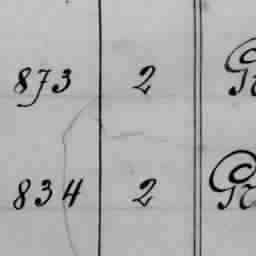 873 2
834 2